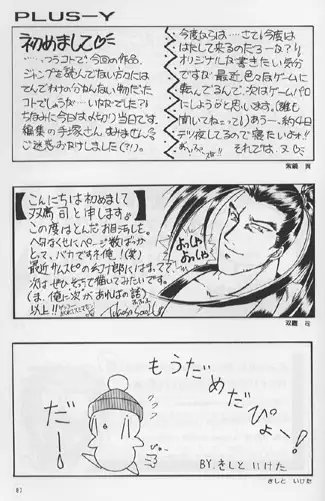 PLUS-Y
初めまして♡
……つうコトで、今回の作品、
ジャンプを読んでない方々には
てんでわけの分かんない物だった
コトでしょうな……いなーでした?!
ちなみに今日が〆切り当日です。
編集の手塚さん、すみません
ご迷惑おかけしました(?!)。
今度ならは……さて、今度は
はたして来るのだろーな?!
オリジナルな書きたい気分
ですな。最近、色々なゲームに
転んでるんで、次はゲームパロ
にしようかと思います。(誰も
聞いてねぇって)あうー、約4日
テツ夜してるので寝たいよォ!!
それでは、又♡
こんにちは初めまして
双鷹 司と申します。
この度はとんだお目汚しを。
ヘタなくせにページ数ばっか
とって、バカでもネ俺!(笑)
最近サムスピの幻十郎にはまってて、
次はぜひそちらで描いてみたいです。
(ま、俺に次があればの話)
以上!!
おっしゃ
おっしゃ
双鷹 司
もうだめだぴょー!
だーー
BY.きしと いけた
きしと いけた
87